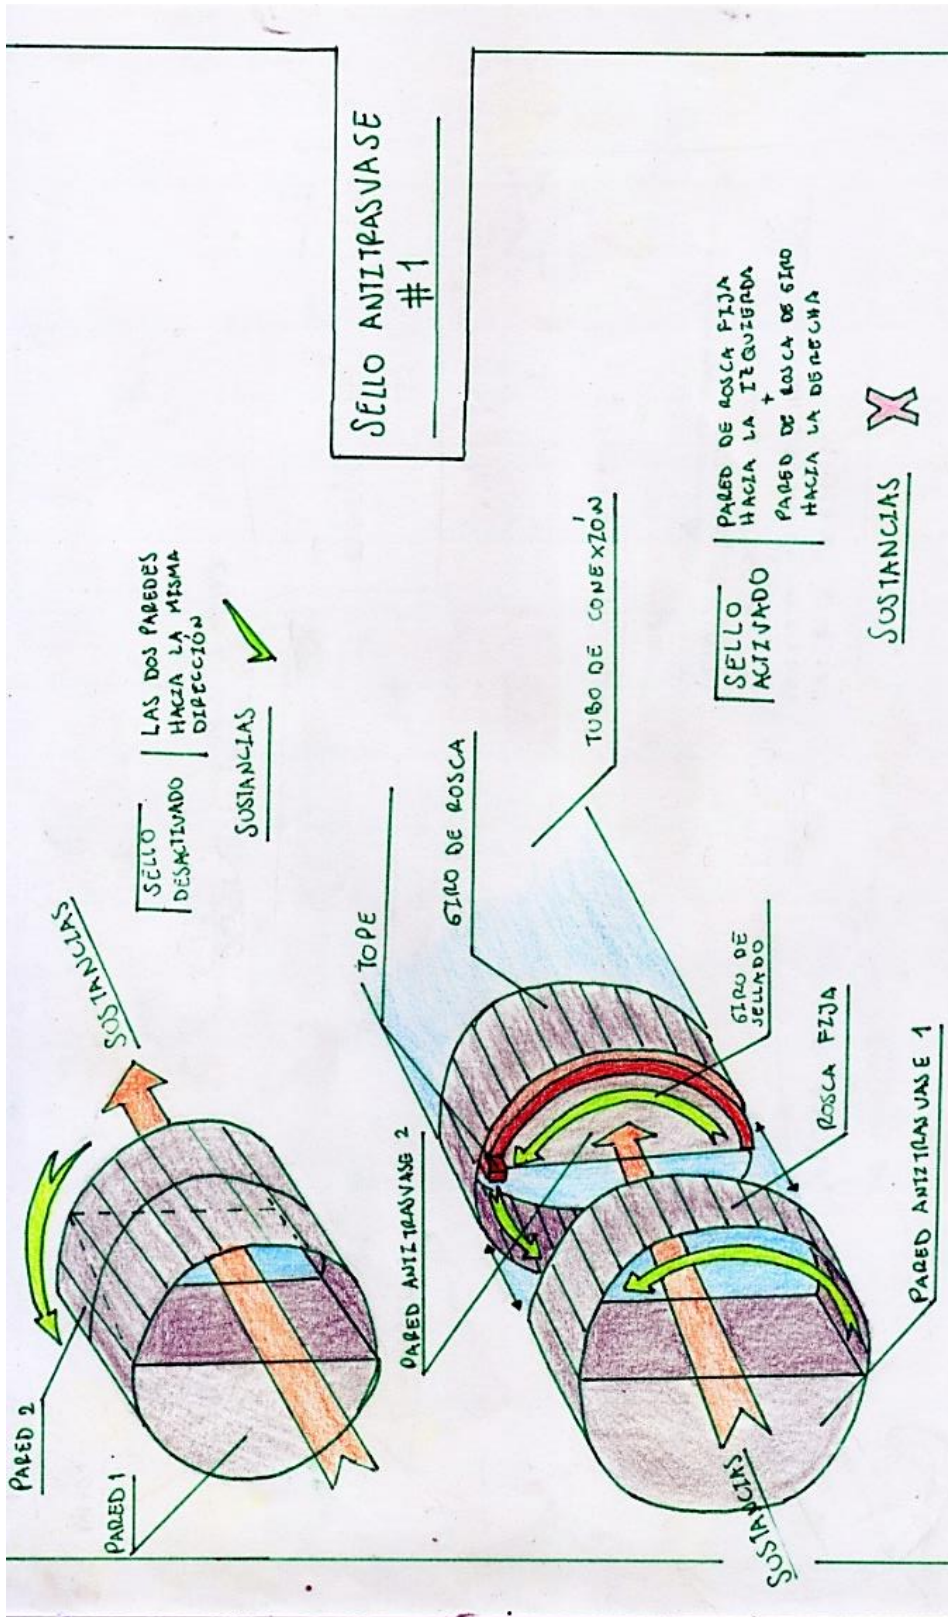 SELLO ANTITRASVASE
#1
PARED 2
PARED 1
SUSTANCIAS
SELLO
DESACTIVADO
LAS DOS PAREDES
HACIA LA MISMA
DIRECCIÓN
SUSTANCIAS
PARED ANTITRASVASE 2
TOPE
GIRO DE ROSCA
TUBO DE CONEXIÓN
GIRO DE
SELLADO
ROSCA FIJA
PARED ANTITRASVASE 1
SUSTANCIAS
SELLO
ACTIVADO
PARED DE ROSCA FIJA
HACIA LA IZQUIERDA
+
PARED DE ROSCA DE GIRO
HACIA LA DERECHA
SUSTANCIAS
X